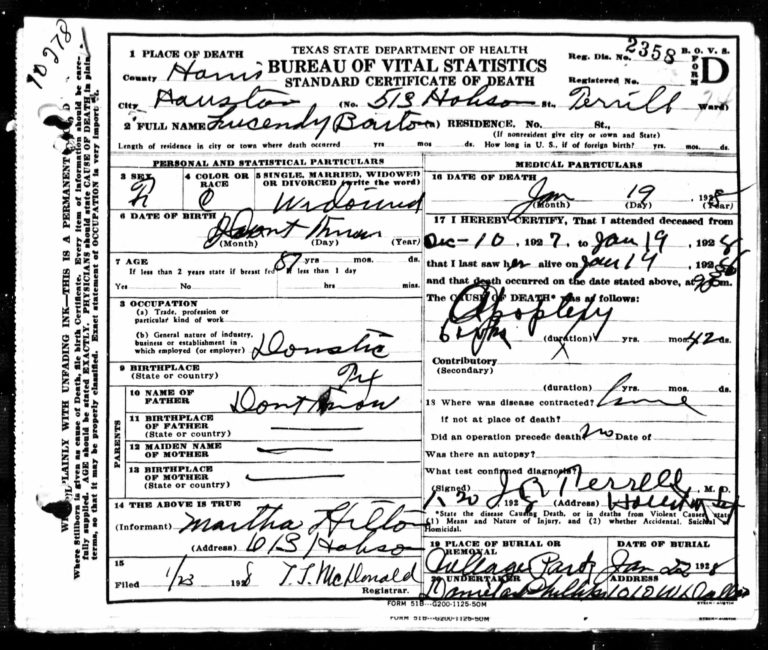 TEXAS STATE DEPARTMENT OF HEALTH
BUREAU OF VITAL STATISTICS
STANDARD CERTIFICATE OF DEATH
Reg. Dis. No. 2358 B. O. V. S.
Registered No.
FORM D
1 PLACE OF DEATH
County Harris
City Houston (No. 513 Hobson St., Terrill Ward)
2 FULL NAME Lucendy Barton (a) RESIDENCE. No. St.,
(If nonresident give city or town and State)
Length of residence in city or town where death occurred yrs. mos. ds. How long in U. S., if of foreign birth? yrs. mos. ds.
PERSONAL AND STATISTICAL PARTICULARS
3 SEX F
4 COLOR OR RACE C
5 SINGLE, MARRIED, WIDOWED OR DIVORCED (write the word) Widowed
6 DATE OF BIRTH Dont Know
(Month) (Day) (Year)
7 AGE 87 yrs. mos. ds.
If less than 2 years state if breast fed If less than 1 day
Yes No hrs mins.
8 OCCUPATION
(a) Trade, profession or particular kind of work
(b) General nature of industry, business or establishment in which employed (or employer) Domstic
9 BIRTHPLACE
(State or country) Tex
PARENTS
10 NAME OF FATHER Dont Know
11 BIRTHPLACE OF FATHER
(State or country)
12 MAIDEN NAME OF MOTHER
13 BIRTHPLACE OF MOTHER
(State or country)
14 THE ABOVE IS TRUE
(Informant) Martha Hilton
(Address) 613 Hobson
15
Filed 1/23 1928 T. J. McDonald
Registrar.
MEDICAL PARTICULARS
16 DATE OF DEATH
Jan 19 1928
(Month) (Day) (Year)
17 I HEREBY CERTIFY, That I attended deceased from
Dec-10, 1927, to Jan 19, 1928
that I last saw her alive on Jan 19, 1928
and that death occurred on the date stated above, at
The CAUSE OF DEATH* was as follows:
Apoplexy
(duration) yrs. mos. 42 ds.
Contributory
(Secondary)
(duration) yrs. mos. ds.
18 Where was disease contracted?
if not at place of death?
Did an operation precede death? no Date of
Was there an autopsy?
What test confirmed diagnosis?
(Signed) J. R. Terrell, M. D.
1/20 1928 (Address) Houston Tex
*State the disease Causing Death, or in deaths from Violent Causes, state (1) Means and Nature of Injury, and (2) whether Accidental, Suicidal Homicidal.
19 PLACE OF BURIAL OR REMOVAL
DATE OF BURIAL
Jan 22 1928
20 UNDERTAKER
ADDRESS
FORM 51B---G200-1125-50M